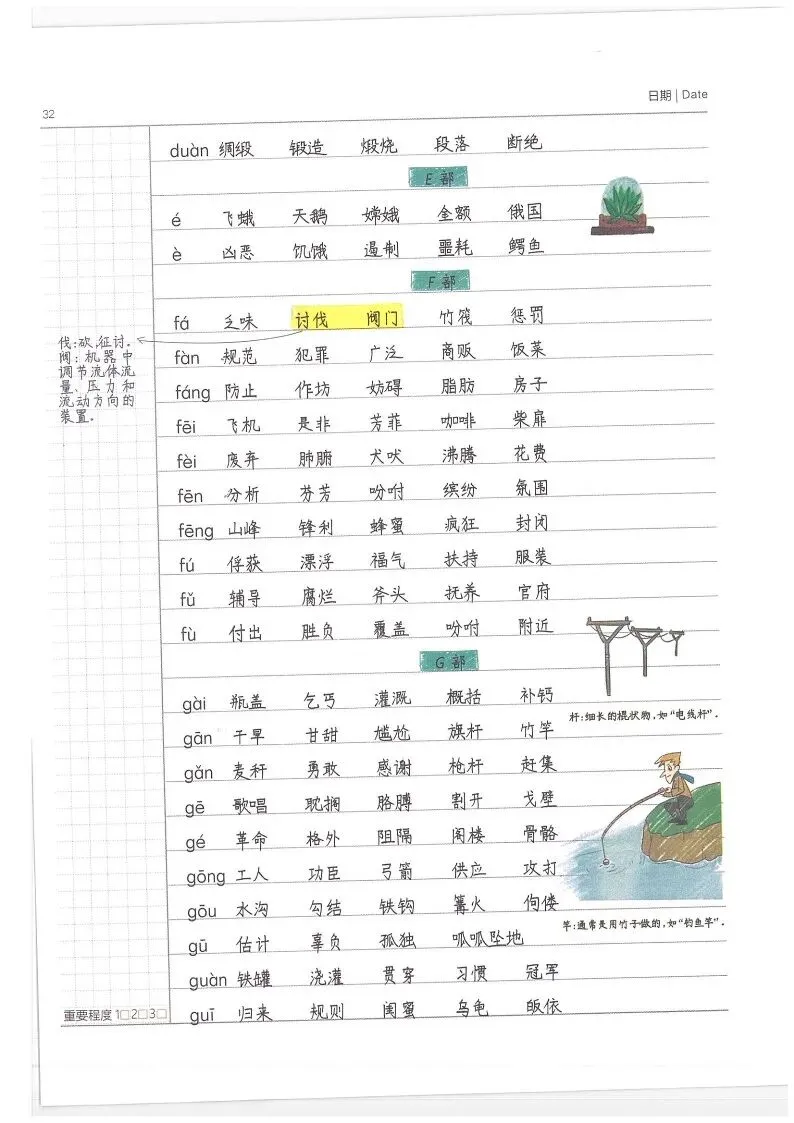 日期 | Date
32
duàn 绸缎 锻造 煅烧 段落 断绝
E 部
é 飞蛾 天鹅 嫦娥 金额 俄国
è 凶恶 饥饿 遏制 噩耗 鳄鱼
F 部
fá 乏味 讨伐 阀门 竹筏 惩罚
伐:砍,征讨。
阀:机器中
调节流体流
量、压力和
流动方向的
装置。
fàn 规范 犯罪 广泛 商贩 饭菜
fáng 防止 作坊 妨碍 脂肪 房子
fēi 飞机 是非 芳菲 咖啡 柴扉
fèi 废弃 肺腑 犬吠 沸腾 花费
fēn 分析 芬芳 吩咐 缤纷 氛围
fēng 山峰 锋利 蜂蜜 疯狂 封闭
fú 俘获 漂浮 福气 扶持 服装
fǔ 辅导 腐烂 斧头 抚养 官府
fù 付出 胜负 覆盖 吩咐 附近
G 部
gài 瓶盖 乞丐 灌溉 概括 补钙
杆:细长的棍状物,如“电线杆”.
gān 干旱 甘甜 尴尬 旗杆 竹竿
gǎn 麦秆 勇敢 感谢 枪杆 赶集
gē 歌唱 耽搁 胳膊 割开 戈壁
gé 革命 格外 阻隔 阁楼 骨骼
gōng 工人 功臣 弓箭 供应 攻打
gōu 水沟 勾结 铁钩 篝火 佝偻
竿:通常是用竹子做的,如“钓鱼竿”.
gū 估计 辜负 孤独 呱呱坠地
guàn 铁罐 浇灌 贯穿 习惯 冠军
guī 归来 规则 闺蜜 乌龟 皈依
重要程度 1□2□3□